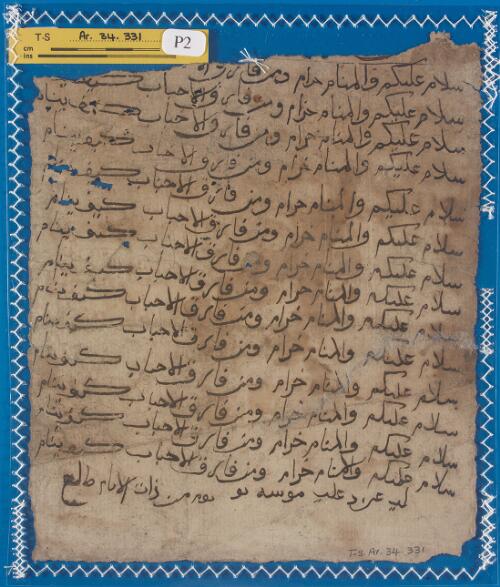 T-S Ar. 34. 331
P2
cm
ins
سلام عليكم والمنام حرام ومن فارق
سلام عليكم والمنام حرام ومن فارق الاحباب كيف ينام
سلام عليكم والمنام حرام ومن فارق الاحباب كيف ينام
سلام عليكم والمنام حرام ومن فارق الاحباب كيف ينام
سلام عليكم والمنام حرام ومن فارق الاحباب كيف ينام
سلام عليكم والمنام حرام ومن فارق الاحباب كيف ينام
سلام عليكم والمنام حرام ومن فارق الاحباب كيف ينام
سلام عليكم والمنام حرام ومن فارق الاحباب كيف ينام
سلام عليكم والمنام حرام ومن فارق الاحباب كيف ينام
سلام عليكم والمنام حرام ومن فارق الاحباب كيف ينام
سلام عليكم والمنام حرام ومن فارق الاحباب كيف ينام
سلام عليكم والمنام حرام ومن فارق الاحباب كيف ينام
سلام عليكم والمنام حرام ومن فارق الاحباب كيف ينام
سلام عليكم والمنام حرام ومن فارق الاحباب كيف ينام
موسه من ذات
T-S. Ar. 34. 331